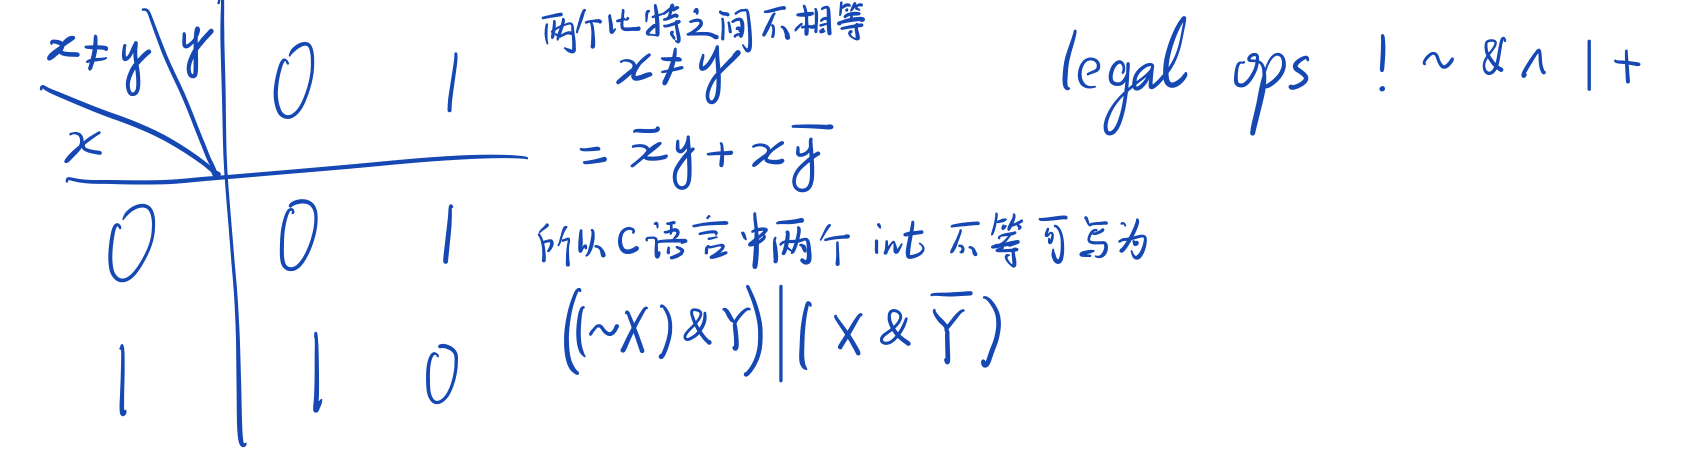 x≠y y 0 1
x
0 0 1
1 1 0
两个比特之间不相等
x≠y
= x̅y + xy̅
所以C语言中两个int不等可写为
((~X)&Y)|(X&Y̅)
legal ops ! ~ & ∧ | +